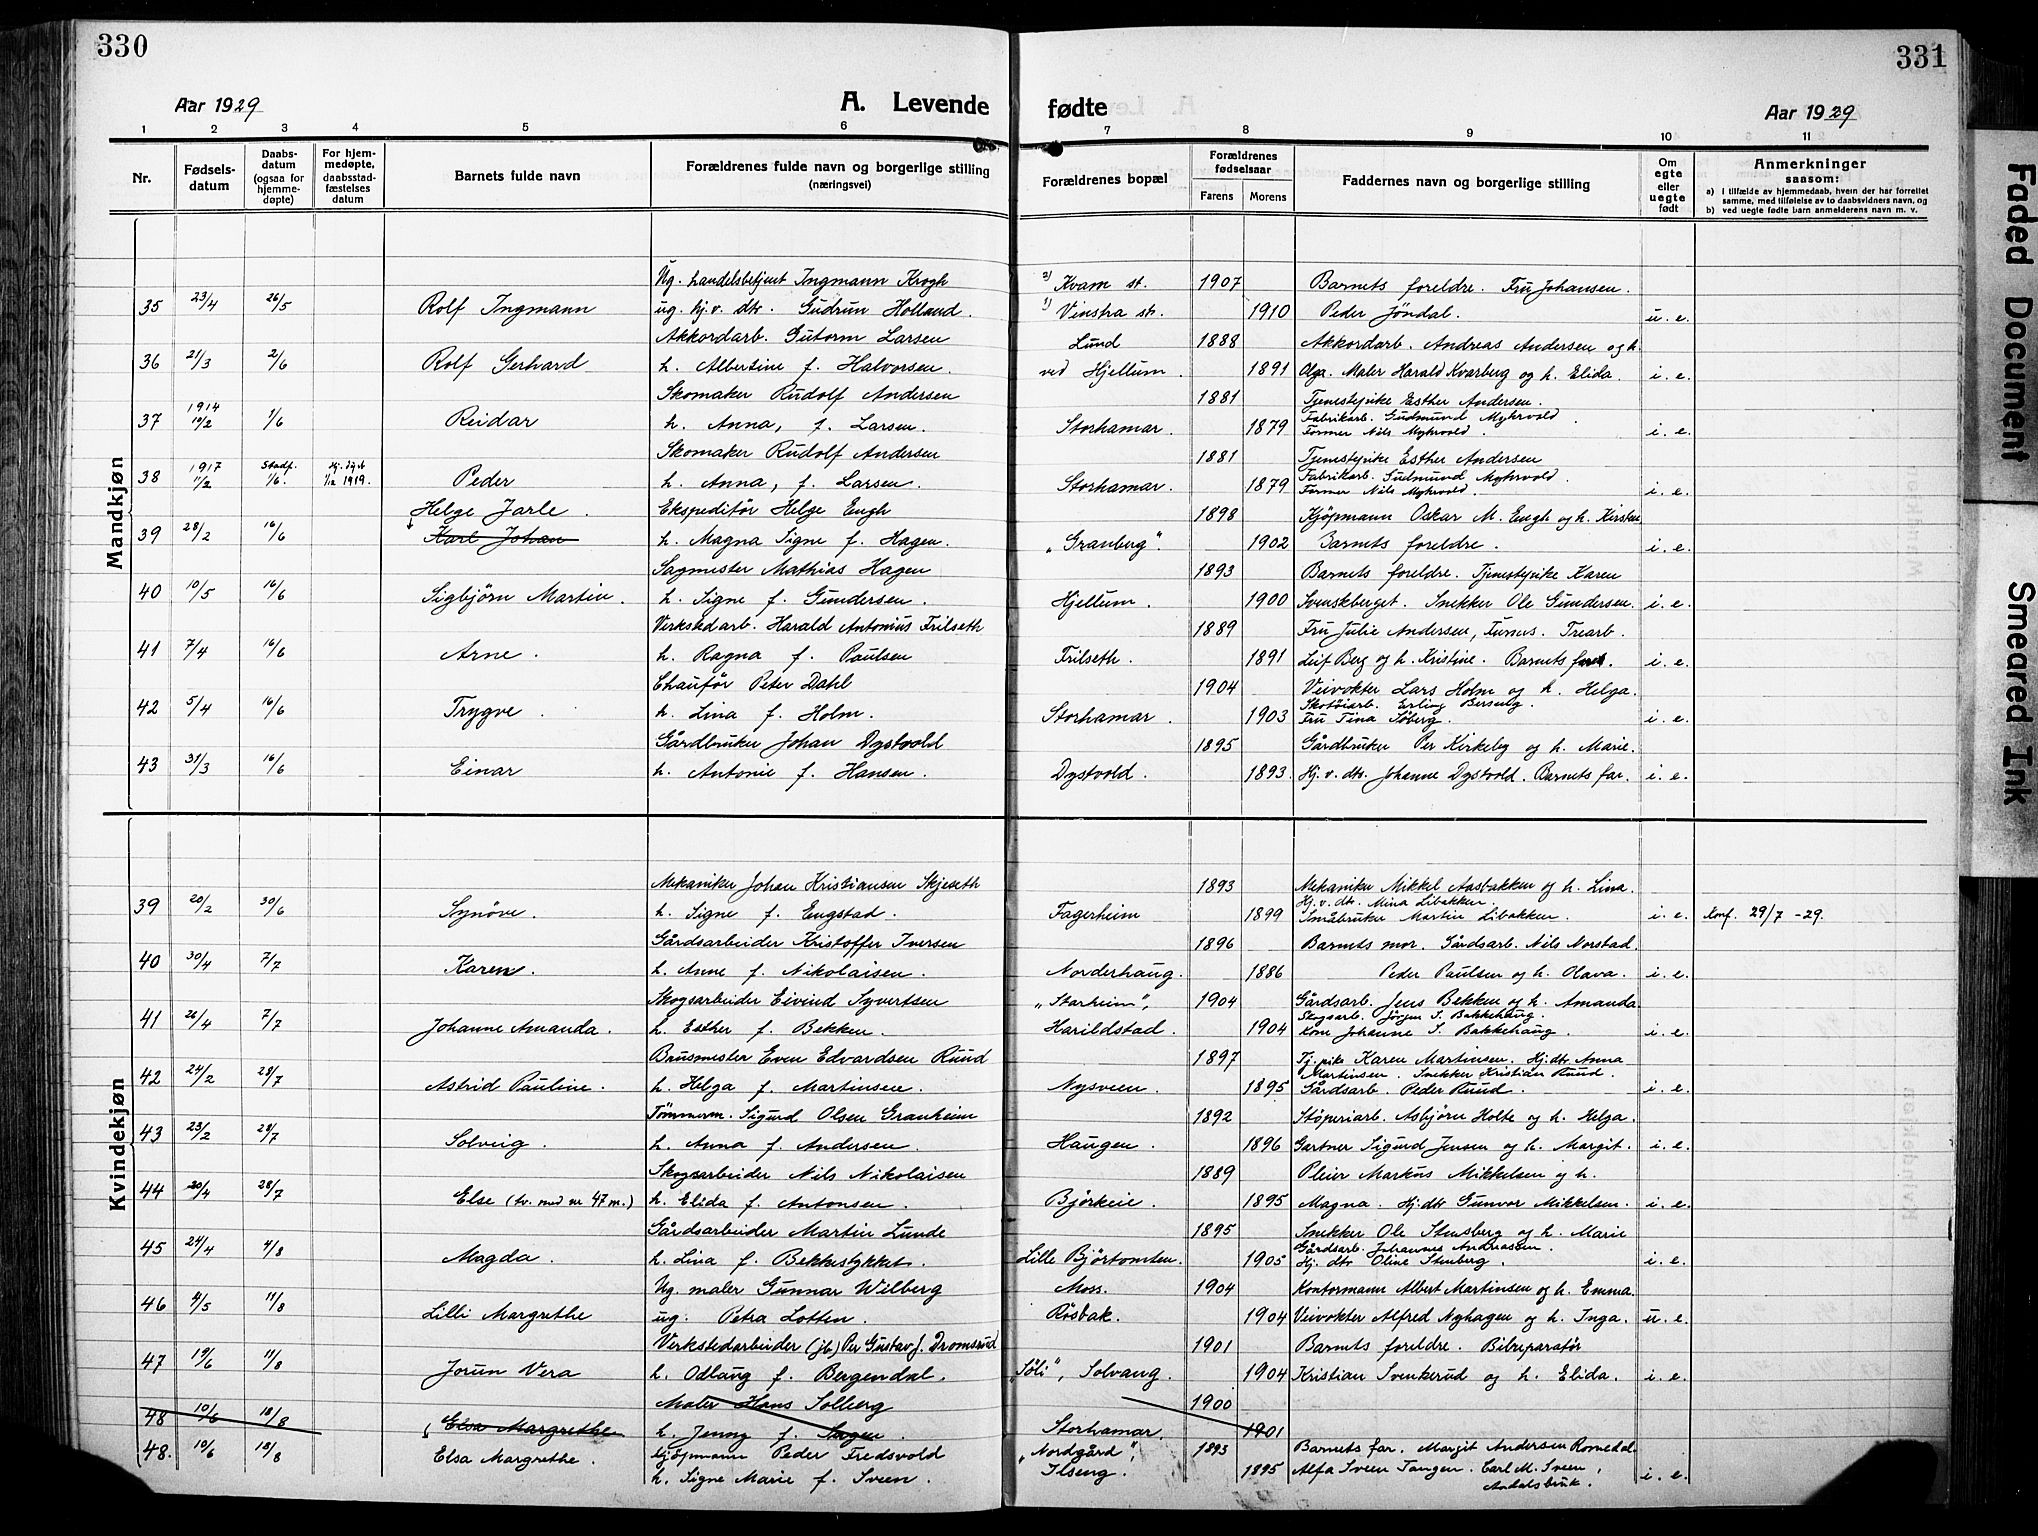 330
331
Aar 1929
A. Levende
fødte
Aar 1929
1 2 3 4 5 6 7 8 9 10 11
Nr.
Fødsels-
datum
Daabs-
datum
(ogsaa for
hjemme-
døpte)
For hjem-
medøpte,
daabsstad-
fæstelses
datum
Barnets fulde navn
Forældrenes fulde navn og borgerlige stilling
(næringsvei)
Forældrenes bopæl
Forældrenes
fødselsaar
Farens Morens
Faddernes navn og borgerlige stilling
Om
egte
eller
uegte
født
Anmerkninger
saasom:
a) i tilfælde av hjemmedaab, hvem der har forrettet
samme, med tilføielse av to daabsvidners navn, og
b) ved uegte fødte barn anmelderens navn m. v.
Mandkjøn
Ug. handelsbetjent Ingmann Krogh 2) Kvam st. 1907 Barnets foreldre. Fru Johansen.
35 23/4 26/5 Rolf Ingmann ug. hj.v. dtr. Gudrun Holland. 1) Vinstra st. 1910 Peder Jöndal. u. e.
Akkordarb. Gutorm Larsen Lund 1888 Akkordarb. Andreas Andersen og h.
36 21/3 2/6 Rolf Gerhard h. Albertine f. Halvorsen. ved Hjellum. 1891 Olga. Maler Harald Kvarberg og h. Elida. i. e.
Skomaker Rudolf Andersen 1881 Tjenestepike Esther Andersen.
1914 Fabrikarb. Gudmund Myhrvold.
37 10/2 1/6 Reidar h. Anna, f. Larsen. Storhamar. 1879 Former Nils Myhrvold. i. e.
Skomaker Rudolf Andersen 1881 Tjenestepike Esther Andersen
1917 Stadf. Fabrikarb. Gudmund Myhrvold.
38 11/2 1/6. 1/12 1919. Peder h. Anna, f. Larsen. Storhamar. 1879 Former Nils Myhrvold. i. e.
Helge Jarle. Ekspeditör Helge Engh 1898 Kjöpmann Oskar M. Engh og h. Kirsten
39 28/2 16/6 Karl Johan h. Magna Signe f. Hagen. „Granberg". 1902 Barnets foreldre. i. e.
Sagmester Mathias Hagen 1893 Barnets foreldre. Tjenestepike Karen
40 10/5 16/6 Sigbjørn Martin. h. Signe f. Gundersen. Hjellum. 1900 Svenskberget. Snekker Ole Gundersen. i. e.
Verkstedarb. Harald Antonius Frilseth 1889 Fru Julie Andersen, Furnes. Trearb.
41 7/4 16/6 Arne. h. Ragna f. Paulsen Frilseth. 1891 Leif Berg og h. Kristine. Barnets i. e.
Chauför Peter Dahl 1904 Veivokter Lars Holm og h. Helga.
Skotöiarb. Erling Berserg.
42 5/4 16/6 Trygve. h. Lina f. Holm. Storhamar. 1903 Fru Tina Söberg. i. e.
Gårdbruker Johan Dystvold 1895 Gårdbruker Per Kirkeby og h. Marie.
43 31/3 16/6 Einar h. Antonie f. Hansen. Dystvold. 1893. Hj. v. dtr. Johanne Dystvold. Barnets far. i. e.
Kvindekjøn
Mekaniker Johan Kristiansen Skjeseth 1893 Mekaniker Mikkel Aasbakken og h. Lina.
Hj. v. dtr. Mina Libakken.
39 20/2 30/6 Synöve. h. Signe f. Engstad. Fagerheim 1899 Småbruker Martin Libakken. i. e. Konf. 29/7 -29.
Gårdsarbeider Kristoffer Iversen 1896 Barnets mor. Gårdsarb. Nils Norstad.
40 30/4 7/7 Karen. h. Anne f. Nikolaisen. Norderhaug. 1886 Peder Paulsen og h. Olava. i. e.
Skogsarbeider Eivind Syvertsen „Starheim", 1904 Gårdsarb. Jens Bekken og h. Amanda.
Skogsarb. Jörgen S. Bakkehaug.
41 26/4 7/7 Johanne Amanda. h. Esther f. Bekken. Harildstad. 1904 Kone Johanne S. Bakkehaug. i. e.
Brusmester Even Edvardsen Ruud 1897 Tj.pike Karen Martinsen. Hj.dtr Anna
Martinsen. Snekker Kristian Ruud.
42 24/2 28/7 Astrid Pauline. h. Helga f. Martinsen. Nysveen. 1895 Gårdsarb. Peder Ruud. i. e.
Tömmerm. Sigurd Olsen Granheim 1892 Stöperiarb. Asbjørn Holte og h. Helga.
43 23/2 28/7 Solveig. h. Anna f. Andersen. Haugen. 1896 Gartner Sigurd Jensen og h. Margit. i. e.
Skogsarbeider Nils Nikolaisen 1889 Pleier Markus Mikkelsen og h.
44 20/4 28/7 Else (tv. med nr 47 m.) h. Elida f. Antonsen. Björkeie. 1895 Magna. Hj.dtr Gunvor Mikkelsen. i. e.
Gårdsarbeider Martin Lunde 1895 Snekker Ole Stensberg og h. Marie
Gårdsarb. Johannes Andreassen.
45 24/4 4/8 Magda. h. Lina f. Bekkestykket. Lille Björtomten. 1905 Hj. dtr Oline Stenberg. i. e.
Ug. maler Gunnar Wilberg Moss. 1904 Kontormann Albert Martinsen og h. Emma.
46 4/5 11/8 Lilli Margrethe ug. Petra Lotten. Rösbak. 1904 Veivokter Alfred Nyhagen og h. Inga. u. e.
Verkstedarbeider (jb) Per Gustav J. Dromsrud 1901 Barnets foreldre. Bilreparatör
47 19/6 11/8 Jorun Vera h. Odlaug f. Bergendal. „Söli", Solvang. 1904 Kristian Svenkerud og h. Elida. i. e.
Maler Hans Solberg 1900
48 10/6 18/8 Elsa Margrethe h. Jenny f. Hagen. Storhamar. 1901
48. 10/6 18/8 Elsa Margrethe. Kjöpmann Peder Fredsvold „Nordgård", 1893 Barnets far. Margit Andersen Romedal.
h. Signe Marie f. Sveen. Ilseng. 1895 Alfa Sveen Tangen. Carl M. Sveen, i. e.
Andalsbruk.
Faded Document
Smeared Ink